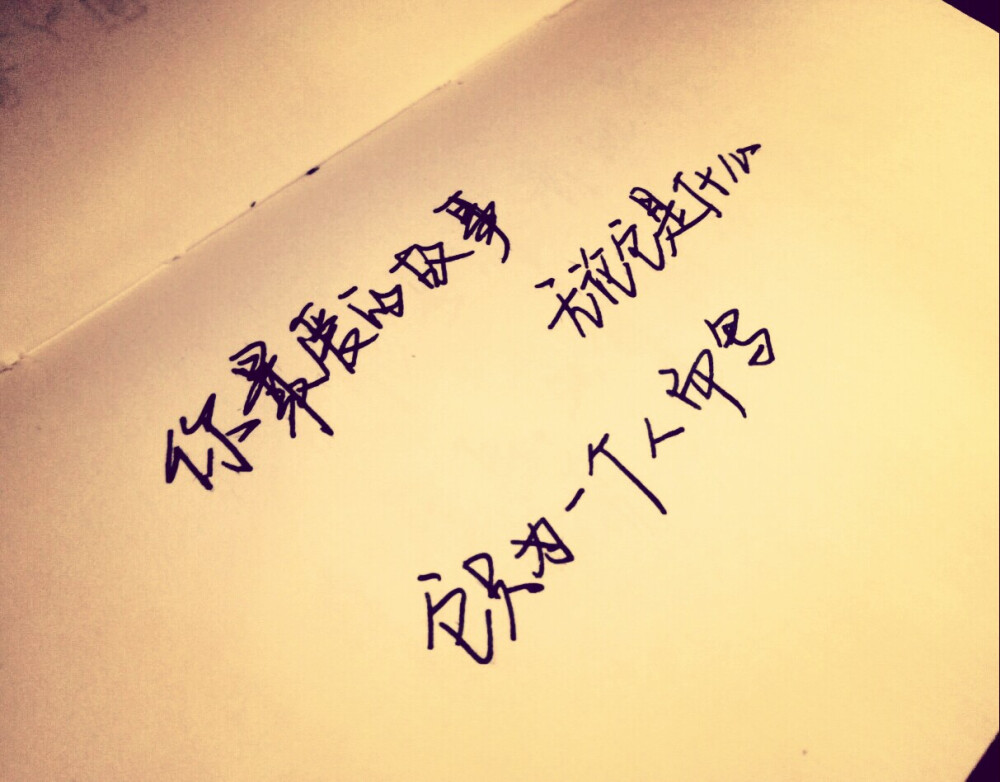 你最爱的故事
无论它是什么
它只为一个人而写